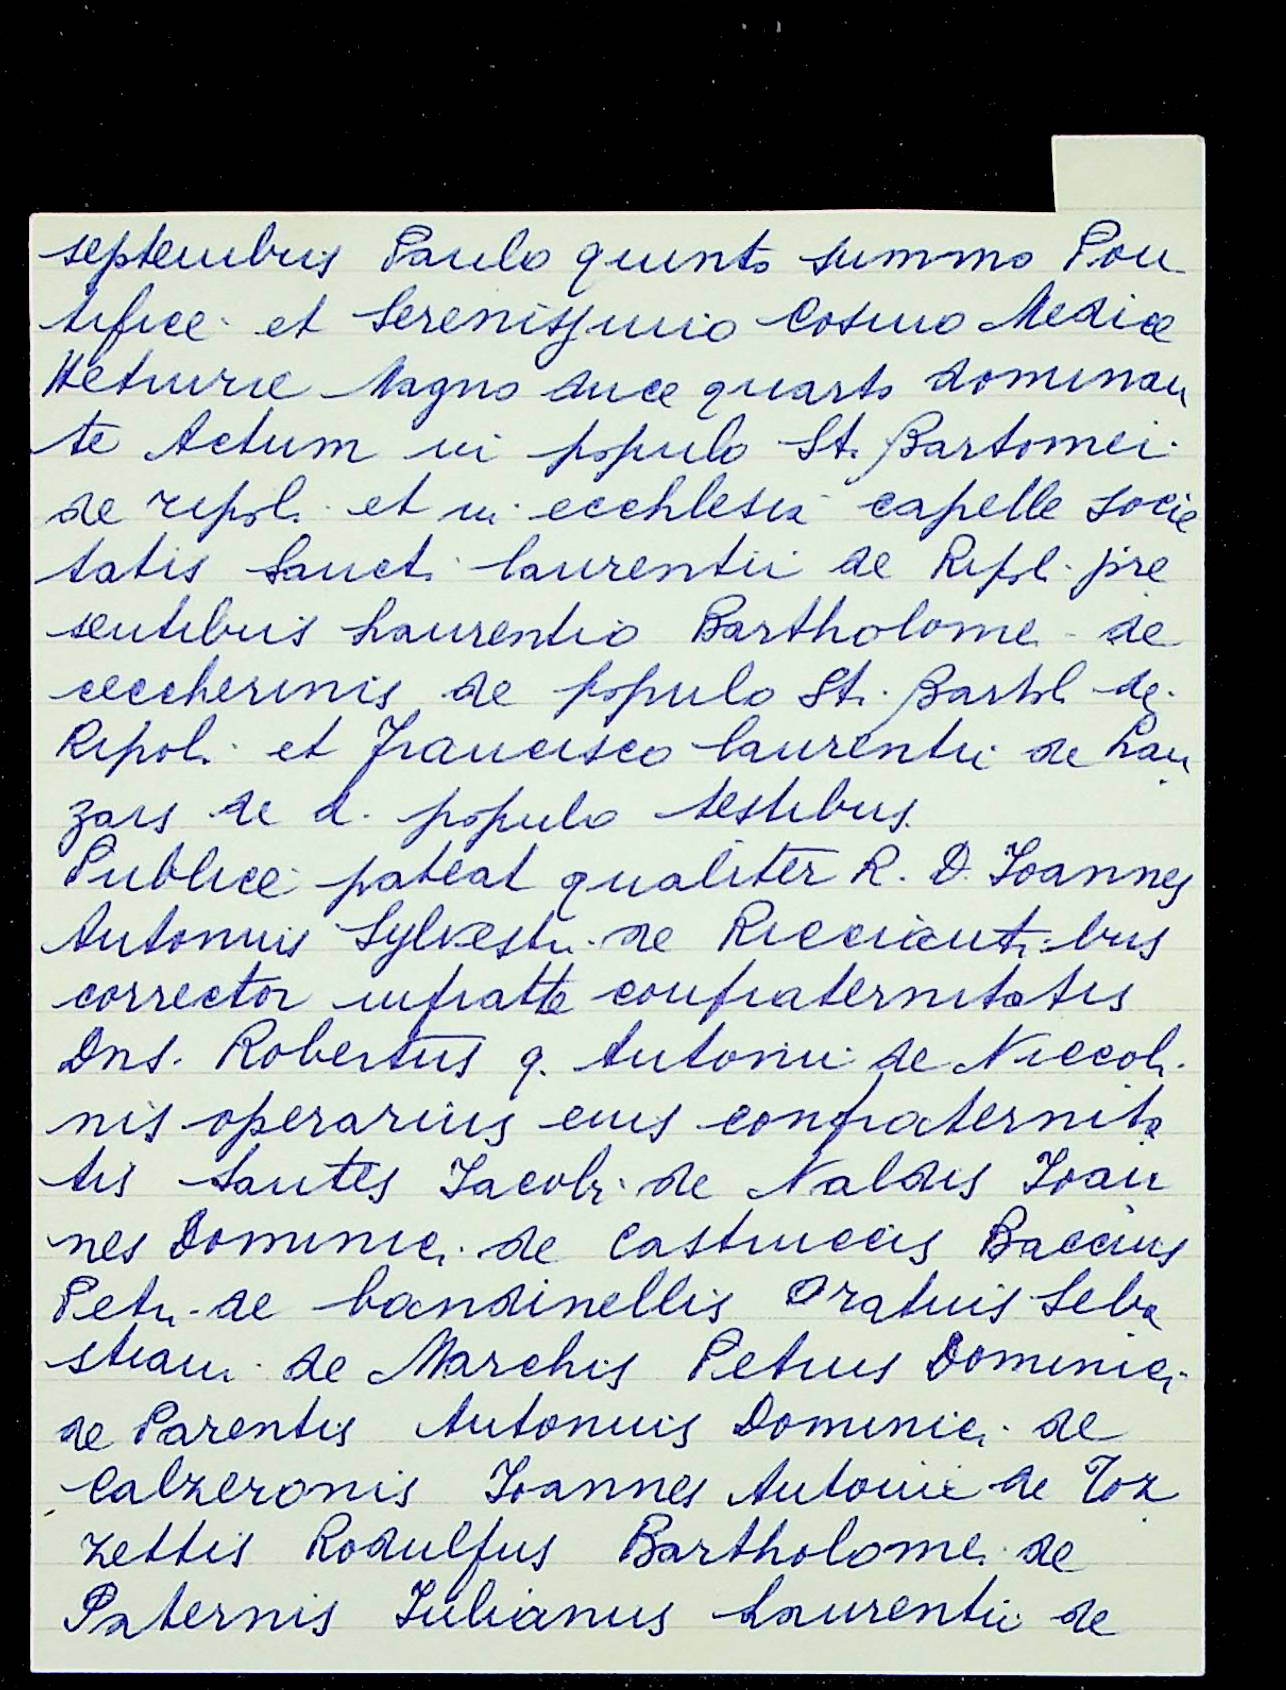 septembris Paulo quinto summo Pon
tifice et Serenissimo Cosmo Medice
Hetrurie Magno duce quarto dominan
te Actum in populo St. Bartomei
de ripoli et in ecchlesia capelle socie
tatis Sancti laurentii de Ripoli pre
sentibus Laurentio Bartholomei de
ceccherinis de populo St. Bartol de
Ripoli et Francisco laurentii de Lan
zars de d. populo testibus
Publice pateat qualiter R. D. Ioannes
Antonius Sylvestri de Riccicutibus
corrector infratte confraternitatis
Dns. Robertus q. Antonii de Niccoli
nis operarius eius confraternita
tis Santes Iacobi de Naldis Ioan
nes Dominici de Castruccis Baccius
Petri de bandinellis Oratuis Seba
stiani de Marchis Petrus Dominici
de Parentis Antonius Dominici de
Calzeronis Ioannes Antonii de Toz
zettis Rodulfus Bartholomei de
Paternis Iulianus Laurentii de